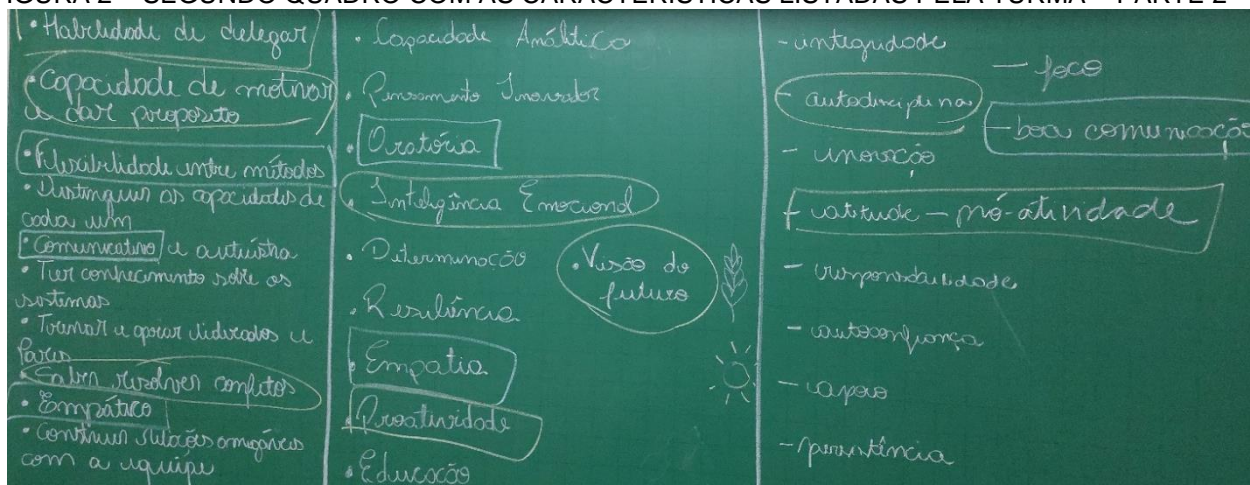 IGURA 2 – SEGUNDO QUADRO COM AS CARACTERÍSTICAS LISTADAS PELA TURMA – PARTE 2
• Habilidade de delegar
• Capacidade de motivar
e dar proposito
• Flexibilidade entre métodos
• Distinguir as capacidades de
cada um
• Comunicativo e
• Ter conhecimento sobre os
sistemas
• Treinar e apoiar liderados e
Pares
• Saber resolver conflitos
• Empático
• Construir relações amigáveis
com a equipe
• Capacidade Analítica
• Pensamento Inovador
• Oratória
• Inteligência Emocional
• Determinação
• Visão do
futuro
• Resiliência
• Empatia
• Proatividade
• Educação
- integridade
- foco
- autodisciplina
- boa comunicação
- inovação
- atitude - pró-atividade
- responsabilidade
- autoconfiança
- apoio
- persistência